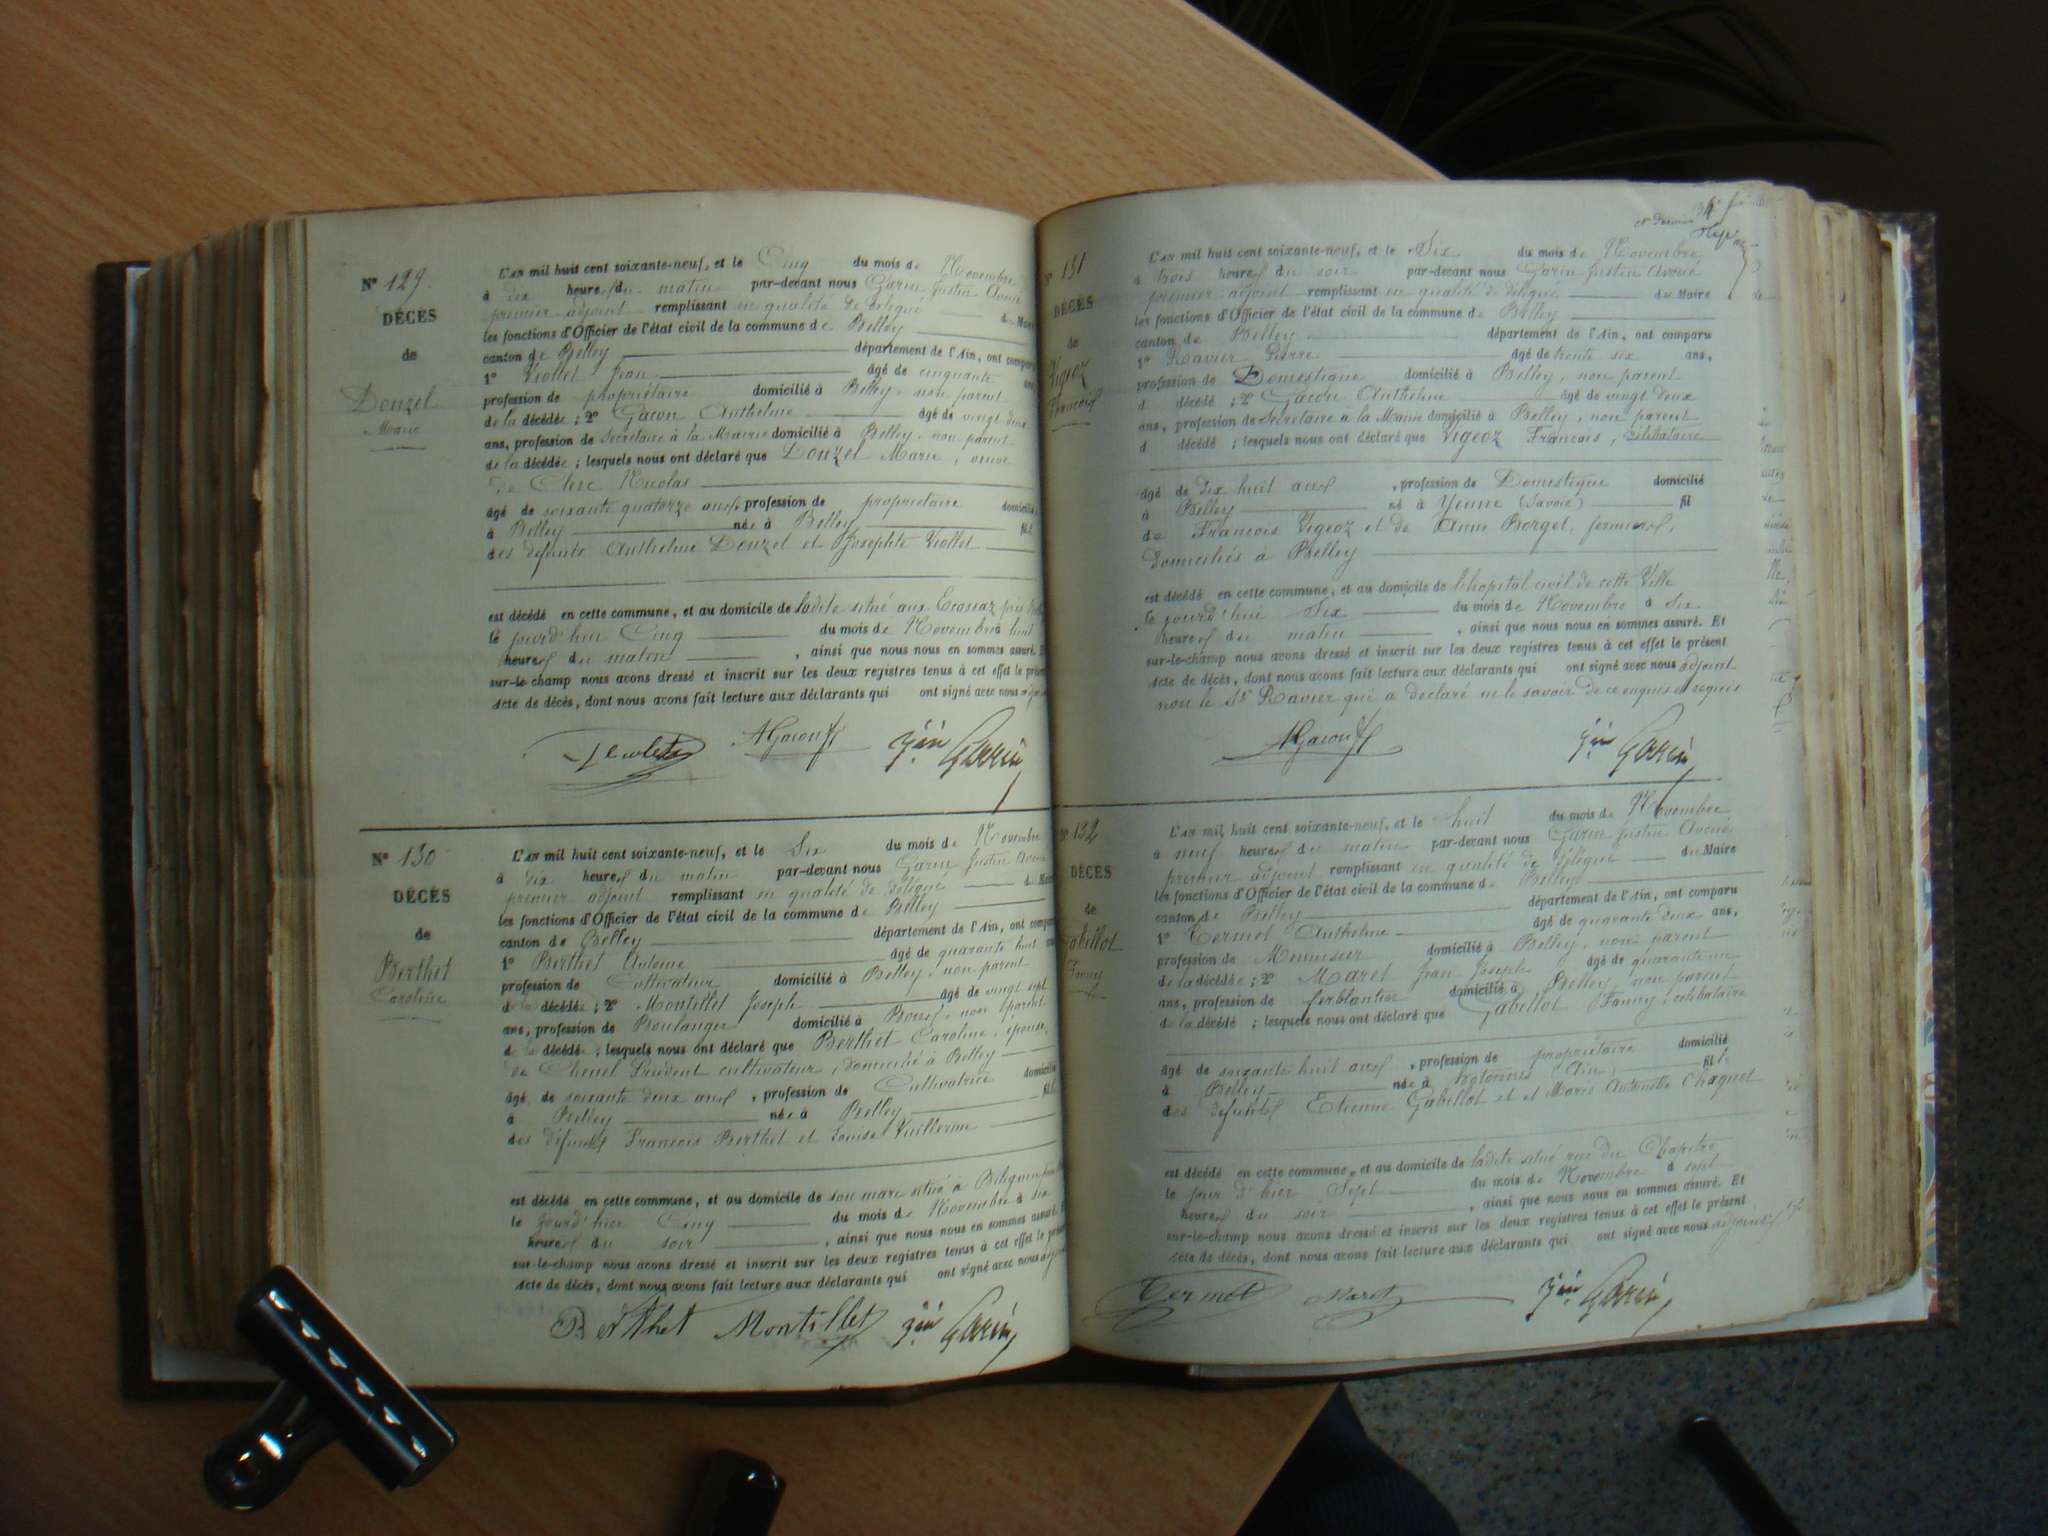 Nº 129
DÉCÈS
de
Donzel
Marie
L'AN mil huit cent soixante-neuf, et le Cinq du mois de Novembre
à dix heures du matin par-devant nous Garin Justin Avoué
premier adjoint remplissant en qualité de délégué du Maire
les fonctions d'Officier de l'état civil de la commune de Belley
canton de Belley département de l'Ain, ont comparu
1º Viollet Jean âgé de cinquante ans
profession de propriétaire domicilié à Belley, non parent
de la décédée ; 2º Gacon Anthelme âgé de vingt deux
ans, profession de Secrétaire à la Mairie domicilié à Belley, non parent
de la décédée ; lesquels nous ont déclaré que Donzel Marie, veuve
de Clerc Nicolas
âgé de soixante quatorze ans, profession de propriétaire domicilié
à Belley née à Belley fille
des défunts Anthelme Donzel et Josephte Viollet
est décédé en cette commune, et au domicile de ladite situé aux Ecassaz près
le jourd'hui Cinq du mois de Novembre à huit
heures du matin , ainsi que nous nous en sommes assuré. Et
sur-le-champ nous avons dressé et inscrit sur les deux registres tenus à cet effet le présent
acte de décès, dont nous avons fait lecture aux déclarants qui ont signé avec nous
AGacon Jin Garin
Nº 130
DÉCÈS
de
Berthet
Caroline
L'AN mil huit cent soixante-neuf, et le Six du mois de Novembre
à dix heures du matin par-devant nous Garin Justin Avoué
premier adjoint remplissant en qualité de délégué du Maire
les fonctions d'Officier de l'état civil de la commune de Belley
canton de Belley département de l'Ain, ont comparu
1º Berthet Antoine âgé de quarante huit ans
profession de Cultivateur domicilié à Belley, non parent
de la décédée ; 2º Montillet Joseph âgé de vingt sept
ans, profession de Boulanger domicilié à non parent
de la décédée ; lesquels nous ont déclaré que Berthet Caroline, épouse
de Chenel Prudent cultivateur, domicilié à Belley
âgé de soixante deux ans , profession de Cultivatrice domicilié
à Belley née à Belley fille
des défunts François Berthet et Louise Vuillerme
est décédé en cette commune, et au domicile de son mari situé à Billignin
le jourd'hier Cinq du mois de Novembre à six
heures du soir , ainsi que nous nous en sommes assuré. Et
sur-le-champ nous avons dressé et inscrit sur les deux registres tenus à cet effet le présent
acte de décès, dont nous avons fait lecture aux déclarants qui ont signé avec nous adjoint
Berthet Montillet Jin Garin
Nº 131
DÉCÈS
de
Vigeoz
François
L'AN mil huit cent soixante-neuf, et le Six du mois de Novembre
à trois heures du soir par-devant nous Garin Justin Avoué
premier adjoint remplissant en qualité de délégué du Maire
les fonctions d'Officier de l'état civil de la commune de Belley
canton de Belley département de l'Ain, ont comparu
1º Ravier Pierre âgé de trente six ans,
profession de Domestique domicilié à Belley, non parent
d décédé ; 2º Gacon Anthelme âgé de vingt deux
ans, profession de Secrétaire à la Mairie domicilié à Belley, non parent
d décédé ; lesquels nous ont déclaré que Vigeoz François, célibataire
âgé de dix huit ans , profession de Domestique domicilié
à Belley né à Yenne (Savoie) fil
de François Vigeoz et de Anne Borget, fermiers,
domiciliés à Belley
est décédé en cette commune, et au domicile de l'hopital civil de cette Ville
le jourd'hui Six du mois de Novembre à six
heures du matin , ainsi que nous nous en sommes assuré. Et
sur-le-champ nous avons dressé et inscrit sur les deux registres tenus à cet effet le présent
acte de décès, dont nous avons fait lecture aux déclarants qui ont signé avec nous adjoint
non le Sr Ravier qui a déclaré ne le savoir de ce enquis et requis
AGacon Jin Garin
Nº 132
DÉCÈS
de
Gabillot
Fanny
L'AN mil huit cent soixante-neuf, et le huit du mois de Novembre
à neuf heures du matin par-devant nous Garin Justin Avoué
premier adjoint remplissant en qualité de délégué du Maire
les fonctions d'Officier de l'état civil de la commune de Belley
canton de Belley département de l'Ain, ont comparu
1º Termet Anthelme âgé de quarante deux ans,
profession de Menuisier domicilié à Belley, non parent
de la décédée ; 2º Maret Jean Joseph âgé de quarante un
ans, profession de ferblantier domicilié à Belley, non parent
de la décédé ; lesquels nous ont déclaré que Gabillot Fanny, célibataire
âgé de soixante huit ans , profession de propriétaire domicilié
à Belley née à hotonnes (Ain) fille
des défunts Etienne Gabillot et et Marie Antoinette Chaquet
est décédé en cette commune, et au domicile de ladite situé rue du Chapitre
le jour d'hier Sept du mois de Novembre à sept
heures du soir , ainsi que nous nous en sommes assuré. Et
sur-le-champ nous avons dressé et inscrit sur les deux registres tenus à cet effet le présent
acte de décès, dont nous avons fait lecture aux déclarants qui ont signé avec nous adjoint
Termet Maret Jin Garin